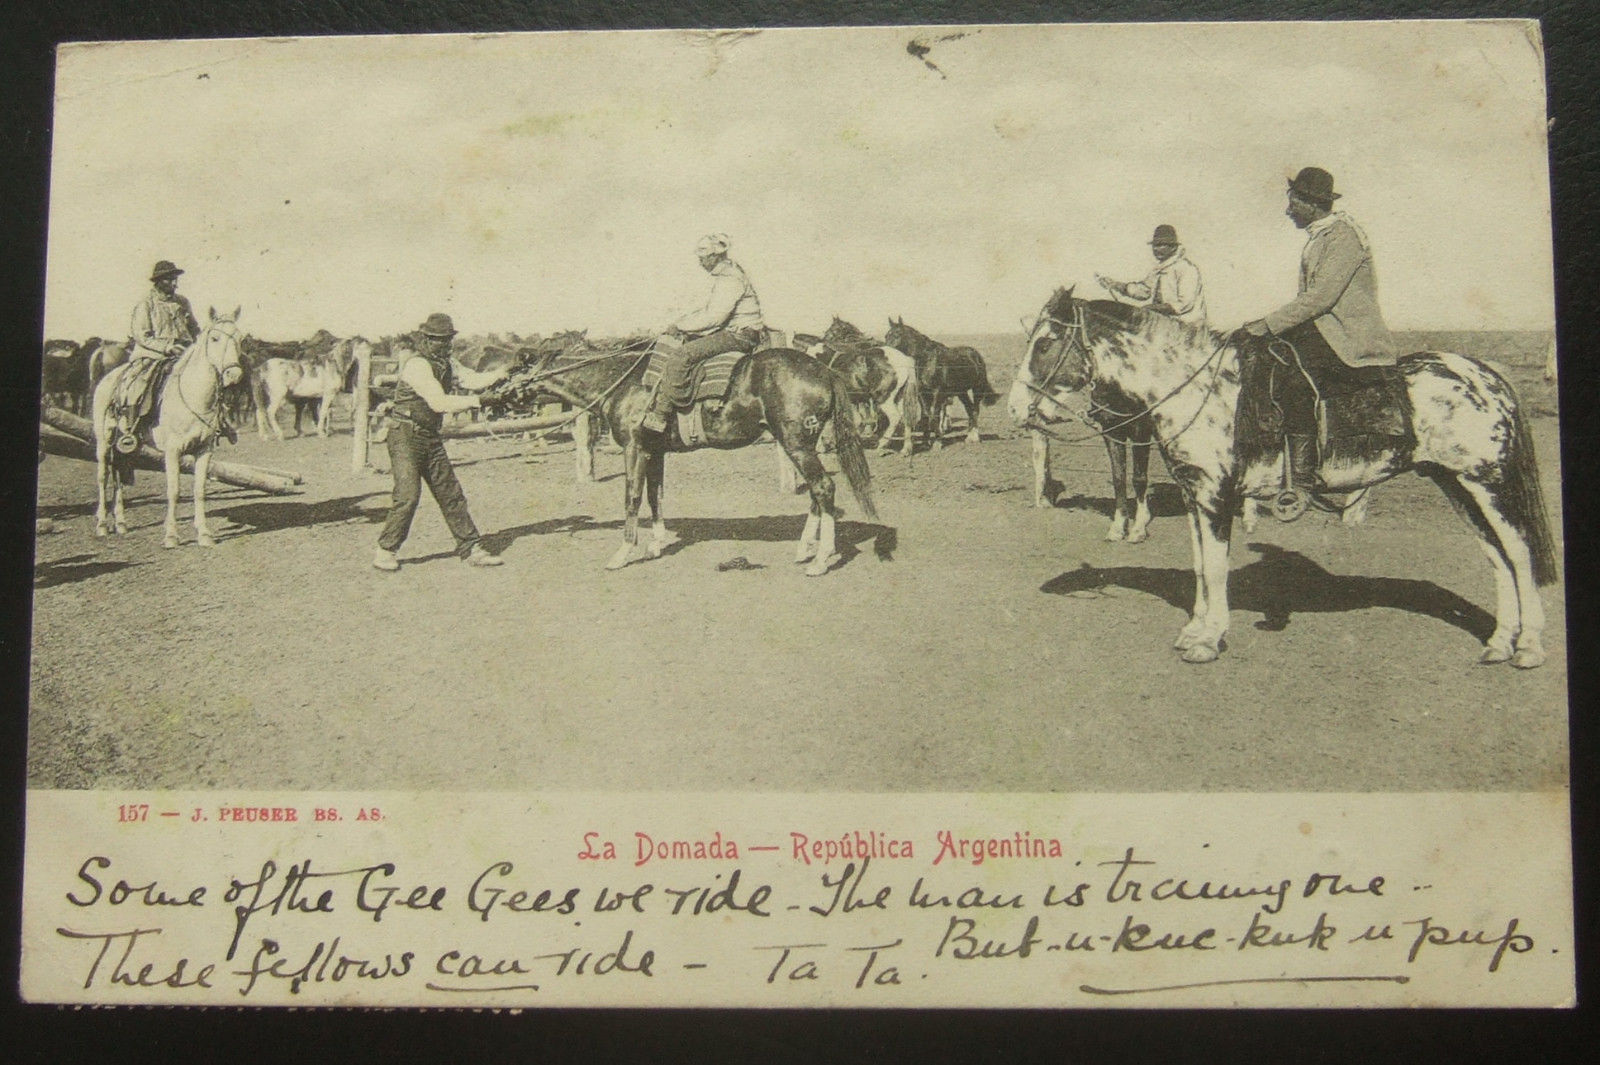 157 — J. PEUSER BS. AS.
La Domada — República Argentina
Some of the Gee Gees we ride - The man is training one ..
These fellows can ride - Ta Ta. Bub-u-kuc-kuk u pup.